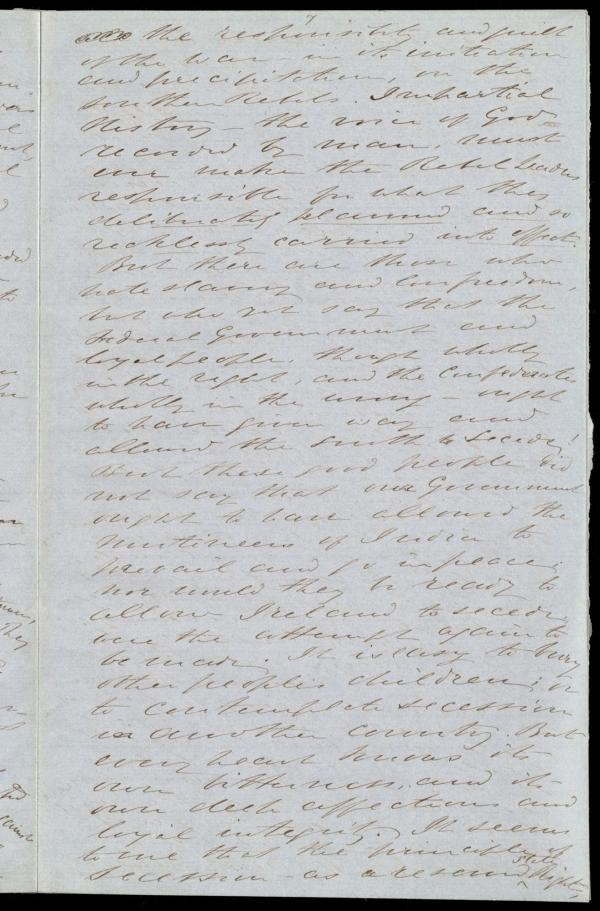 the responsibility and guilt
of the war — in its initiation
and precipitation, on the
Southern Rebels. Impartial
History — the voice of God —
recorded by man, must
ever make the Rebel leaders
responsible for what they
deliberately planned and so
recklessly carried into effect.
But there are those who
hate slavery and love freedom,
but who yet say that the
Federal Government and
loyal people, though wholly
in the right, and the Confederates
wholly in the wrong — ought
to have given way and
allowed the South to Secede!
But these good people did
not say that our Government
ought to have allowed the
Mutineers of India to
prevail and go in peace;
nor would they be ready to
allow Ireland to secede,
were the attempt again to
be made. It is easy to bury
other people's children; or
to contemplate secession
in another country. But
every heart knows its
own bitterness, and its
own deep affections and
loyal integrity. It seems
to me that the principle of
secession — as a reserved State Right,